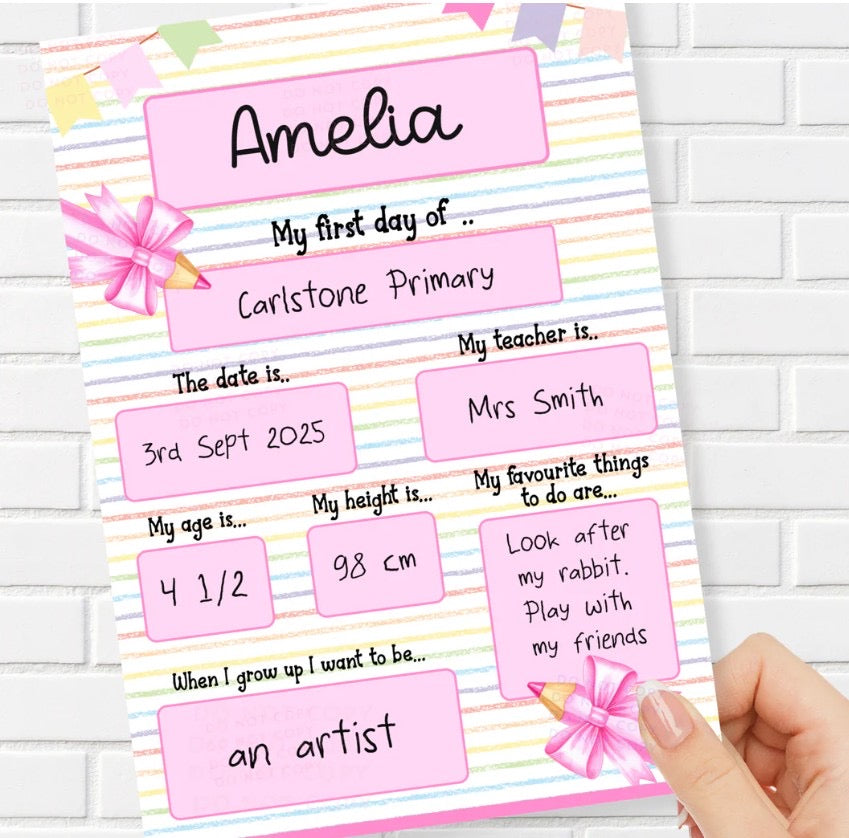 Amelia
My first day of ..
Carlstone Primary
My teacher is..
The date is..
Mrs Smith
3rd Sept 2025
My favourite things
to do are...
My height is...
My age is...
Look after
my rabbit.
Play with
my friends
98 cm
4 1/2
When I grow up I want to be...
an artist
DO NOT COPY